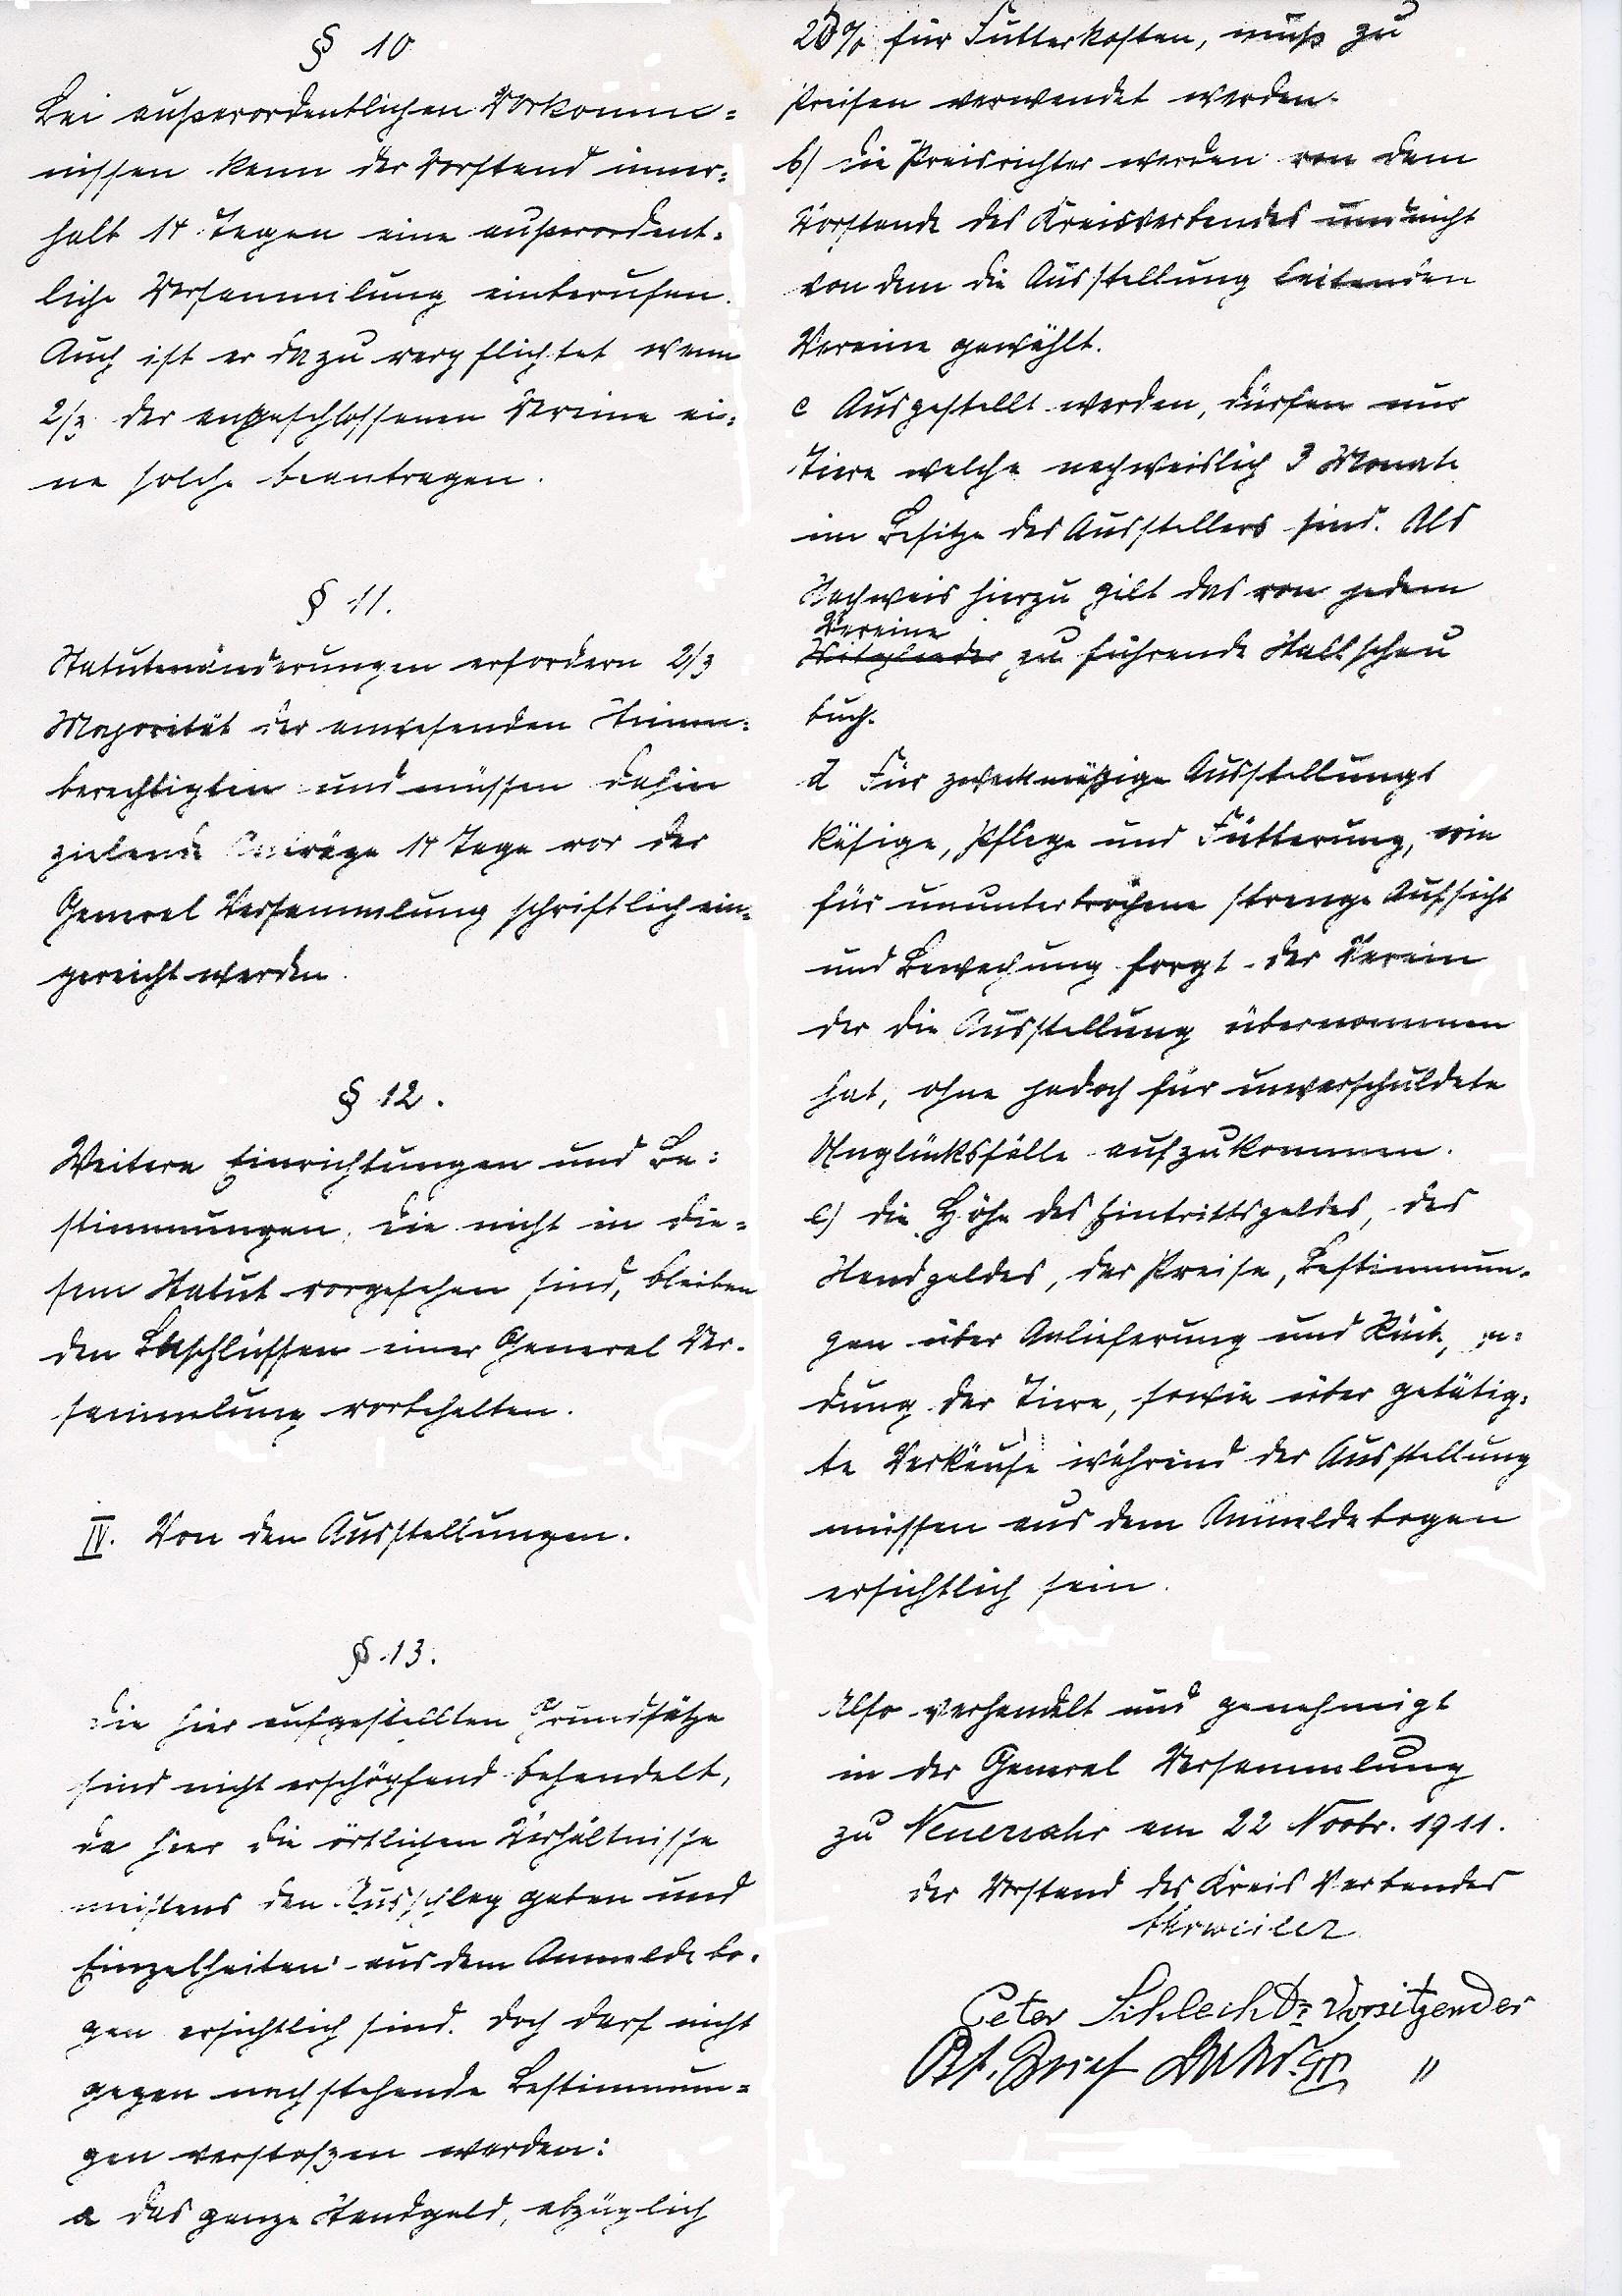 § 10
Bei außerordentlichen Vorkomm=
nissen kann der Vorstand inner=
halb 14 Tagen eine außerordent=
liche Versammlung einberufen.
Auch ist er dazu verpflichtet wenn
2/3 der angeschlossenen Vereine ei=
ne solche beantragen.
§ 11.
Statutenänderungen erfordern 2/3
Majorität der anwesenden Stimm=
berechtigten und müssen dahin
zielende Anträge 14 Tage vor der
General Versammlung schriftlich ein=
gereicht werden.
§ 12.
Weitere Einrichtungen und Be=
stimmungen, die nicht in die=
sem Statut vorgesehen sind, bleiben
den Beschlüssen einer General Ver=
sammlung vorbehalten.
IV. Von den Ausstellungen.
§ 13.
Die hier aufgestellten Grundsätze
sind nicht erschöpfend behandelt,
da hier die örtlichen Verhältnisse
meistens den Ausschlag geben und
Einzelheiten aus dem Anmeldebo=
gen ersichtlich sind. Doch darf nicht
gegen nachstehende Bestimmun=
gen verstoßen werden:
a Das ganze Standgeld, abzüglich
20% für Futterkosten, muß zu
Preisen verwendet werden.
b) Die Preisrichter werden von dem
Vorstande des Kreisverbandes und nicht
von dem die Ausstellung leitenden
Vereine gewählt.
c Ausgestellt werden, dürfen nur
Tiere welche nachweislich 3 Monate
im Besitze des Ausstellers sind. Als
Nachweis hierzu gilt das von jedem
Vereine
Mitglieder zu führende Stallschau
buch.
d Für zweckmäßige Ausstellungs
käfige, Pflege und Fütterung, wie
für ununterbrochene strenge Aufsicht
und Bewachung sorgt der Verein
der die Ausstellung übernommen
hat, ohne jedoch für unverschuldete
Unglücksfälle aufzukommen.
e) Die Höhe des Eintrittsgeldes, des
Standgeldes, der Preise, Bestimmun=
gen über Anlieferung und Rücksen=
dung der Tiere, sowie über getätig=
te Verkäufe während der Ausstellung
müssen aus dem Anmeldebogen
ersichtlich sein.
Also verhandelt und genehmigt
in der General Versammlung
zu Neuenahr am 22 Novbr. 1911.
Der Vorstand des Kreis Verbandes
Ahrweiler
Peter Schlecht, Vorsitzender
"